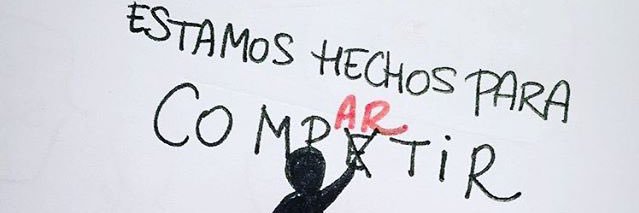 ESTAMOS HECHOS PARA
AR
COMPETIR